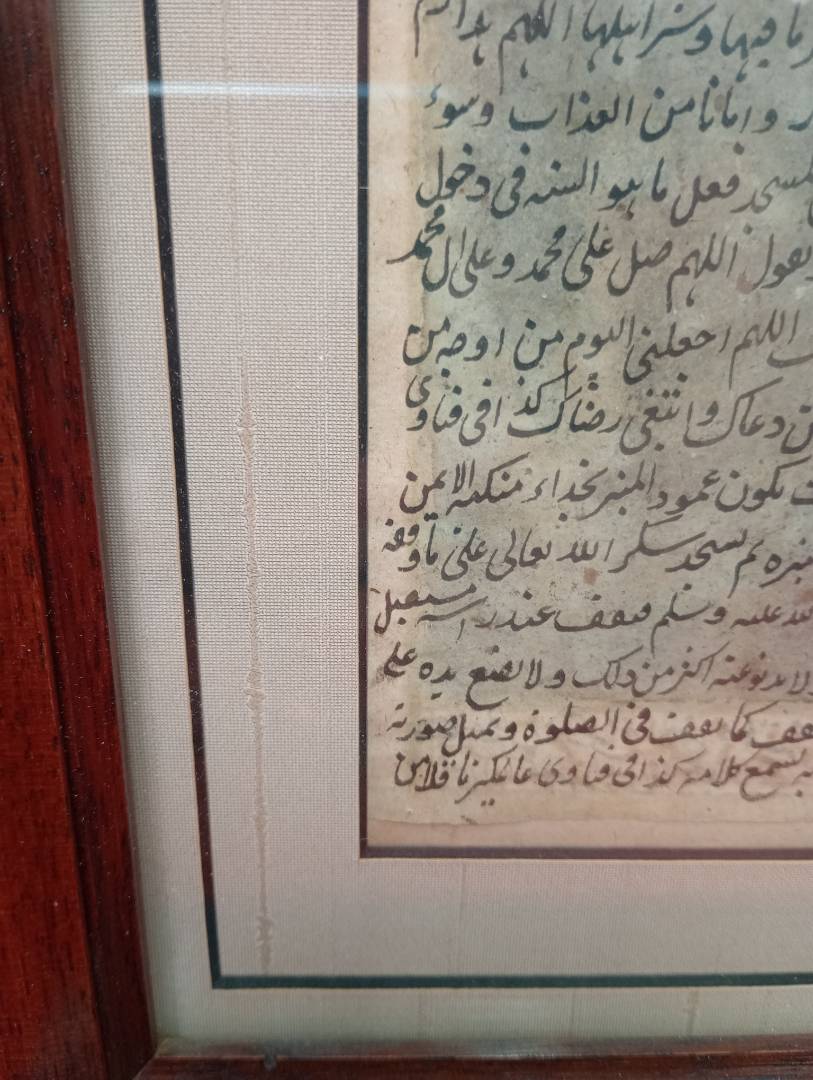 فيها وشر اهلها اللهم هذا حرم
وامانا من العذاب وسوء
فعل ما هو السنه فى دخول
اللهم صل على محمد وعلى ال محمد
اللهم اجعلنى اليوم من اوجه من
دعاك وابتغى رضاك كذا فى فتاوى
يكون عمود المنبر بحذاء منكبه الايمن
ثم يسجد شكرا لله تعالى على ما وفقه
عليه وسلم فيقف عند راسه مستقبل
ولا يدنو عنه اكثر من ذلك ولا يضع يده على
كما يقف فى الصلوة ويمثل صورته
يسمع كلامه كذا فى فتاوى عالمكير ناقلا من